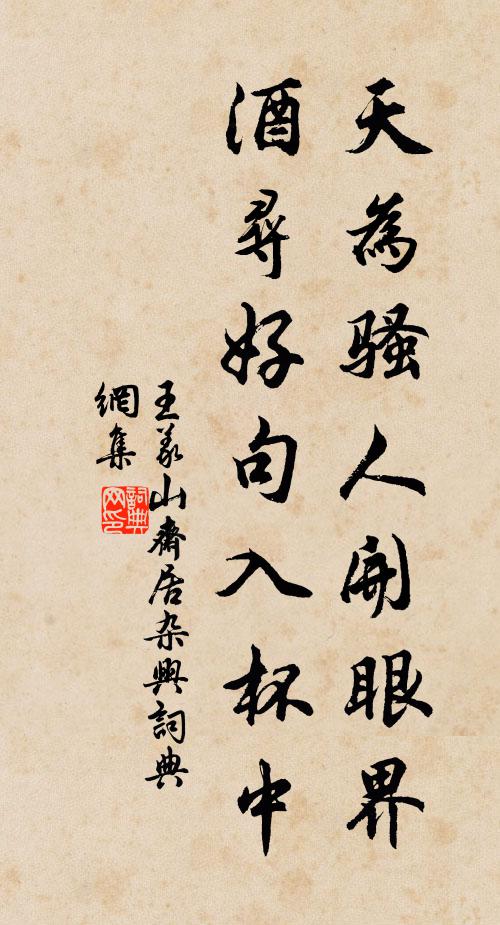 天為騷人開眼界
酒尋好句入杯中
王義山齋居杂興詞典
網集
詞典
网印